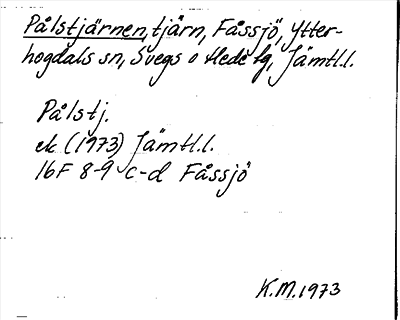 Pålstjärnen, tjärn, Fåssjö, Ytter-
hogdals sn, Svegs o Hede tg, Jämtl.l.
Pålstj.
ek (1973) Jämtl.l.
16F 8-9 c-d Fåssjö
K.M.1973